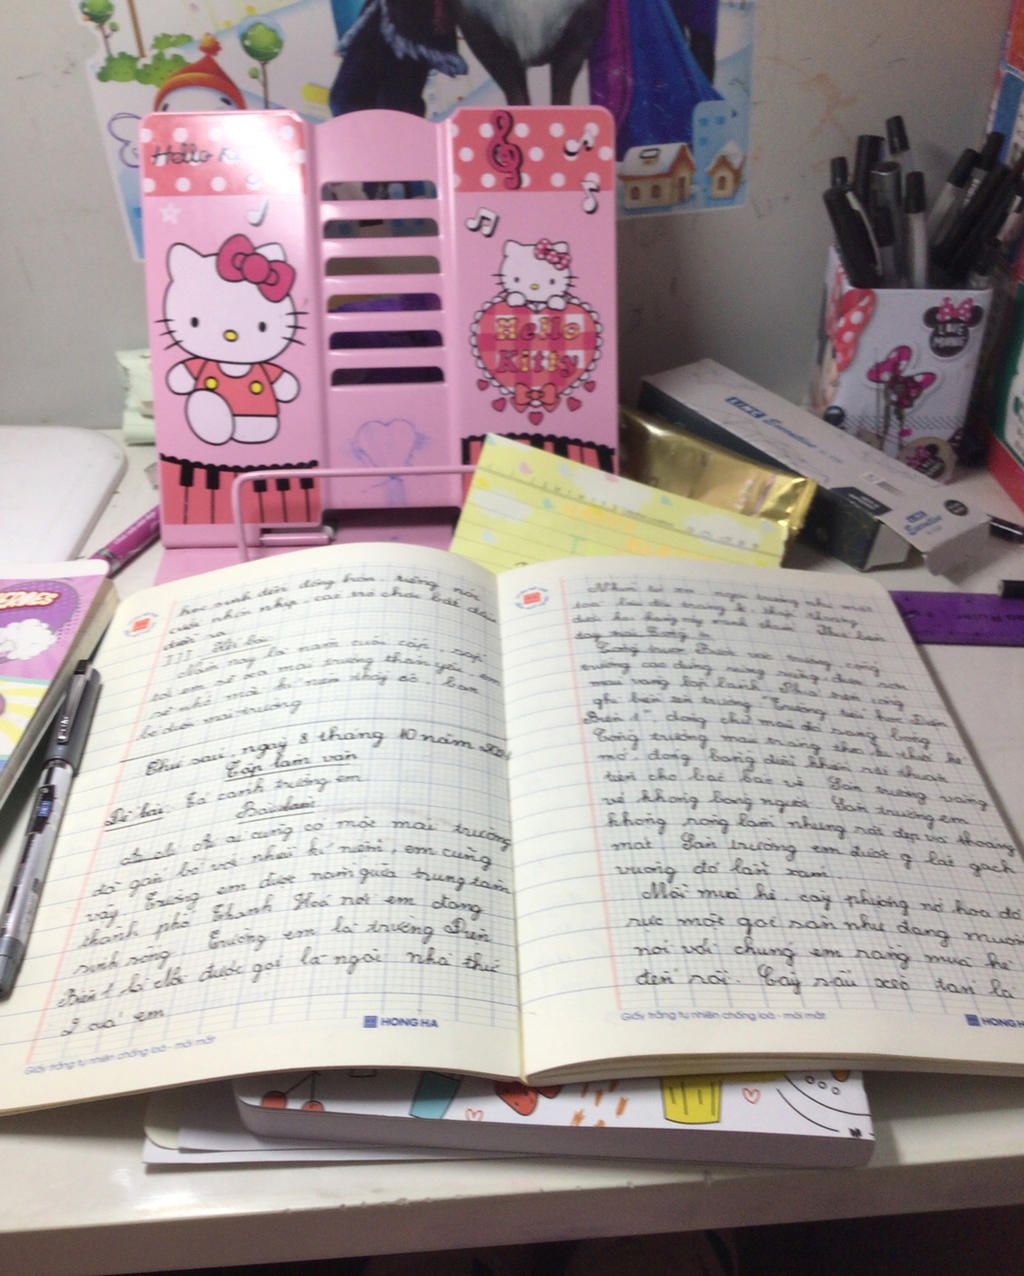 Hello
Hello
Kitty
LOVE
học sinh diễn đồng hòn. tiếng nói
cười nhộn nhịp. các trò chơi bắt đầu
diễn ra
III. Kết bài
Năm nay là năm cuối cấp, sắp
tới em sẽ xa mái trường thân yêu, em
sẽ nhớ mãi kỉ niệm thầy cô bạn
bè dưới mái trường
Thứ sáu ngày 8 tháng 10 năm
Tập làm văn
Đề bài: Tả cảnh trường em
Bài làm
ai cũng có một mái trường
đã gắn bó với nhiều kỉ niệm, em cũng
vậy. Trường em được nằm giữa trung tâm
thành phố Thanh Hoá nơi em đang
sinh sống. Trường em là trường Điện
Biên 1 là nơi được gọi là ngôi nhà thứ
2 của em
HONG HA
Giấy trắng tự nhiên chống loá - mỏi mắt
Nhìn từ xa, ngôi trường như một
toà lâu đài tráng lệ, thấp thoáng
dưới hàng cây xanh
Cổng trước
trường cao đứng sừng sững được sơn
màu vàng lấp lánh. Phía trên cổng
ghi biển tên trường "Trường tiểu học Điện
Biên 1", dòng chữ màu đỏ sang bóng
Cổng trường mái
mở, đóng bằng điều khiển rất thuận
tiện cho bác bảo vệ. Sân trường vắng
vẻ không bóng người. Sân trường em
không rộng lắm nhưng rất đẹp và thoáng
mát. Sân trường em được lát gạch
vuông đỏ lẫn xám.
Mỗi mùa hè, cây phượng nở hoa đỏ
rực một góc sân như đang muốn
nói với chúng em rằng mùa hè
đến rồi. Cây sấu xoè tán lá
Giấy trắng tự nhiên chống loá - mỏi mắt
HONG H